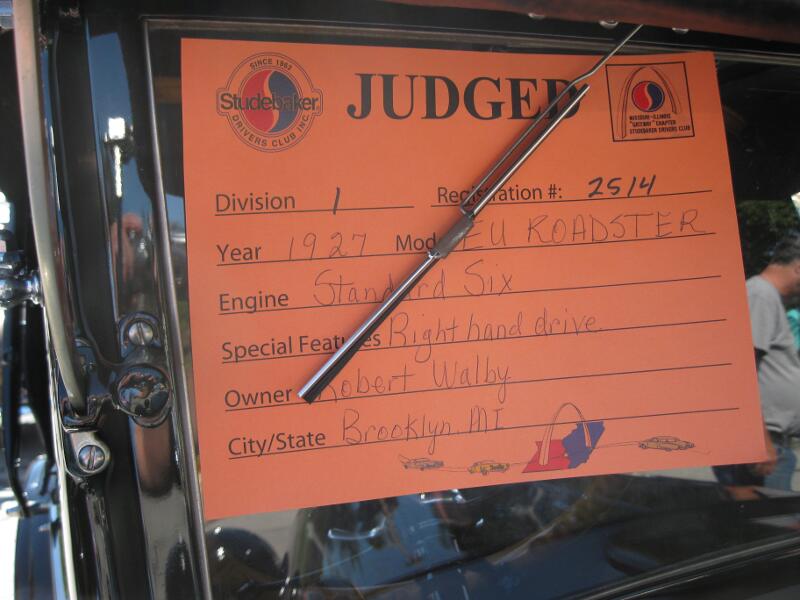 SINCE 1962
Studebaker
DRIVERS CLUB INC.
JUDGED
MISSOURI-ILLINOIS
"GATEWAY" CHAPTER
STUDEBAKER DRIVERS CLUB
Division 1 Registration #: 2514
Year 1927 Mod EU ROADSTER
Engine Standard Six
Special Features Right hand drive
Owner Robert Walby
City/State Brooklyn, MI